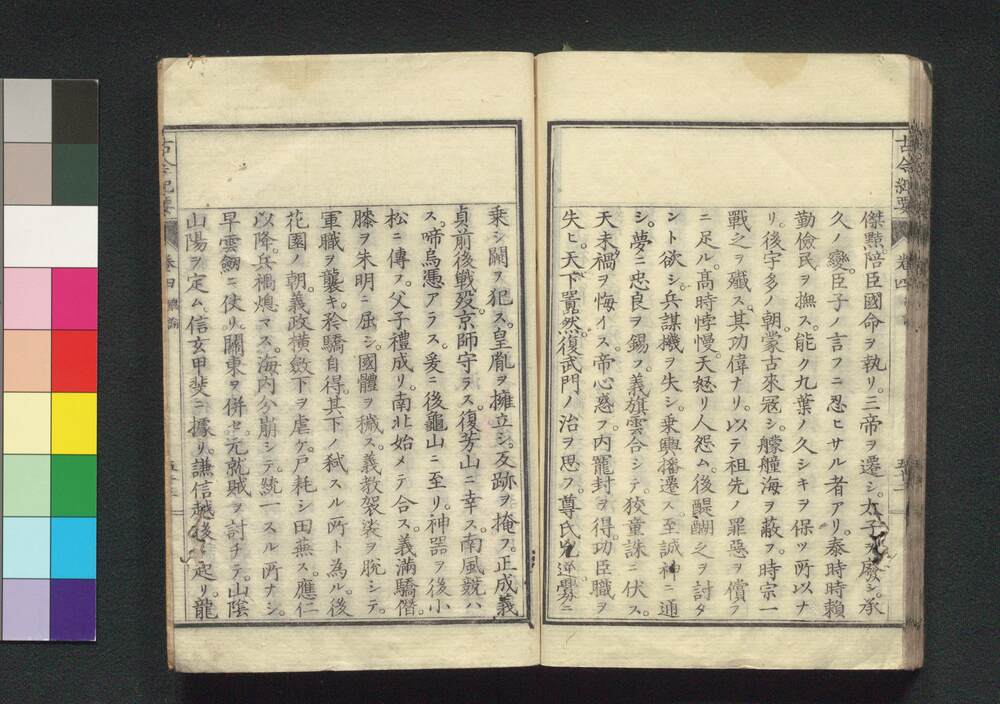 古今紀要 卷四
傑黠陪臣國命ヲ執リ。三帝ヲ遷シ。太子ヲ廢シ。承
久ノ變。臣子ノ言フニ忍ヒサル者アリ。泰時時賴
勤儉民ヲ撫ス。能ク九葉ノ久シキヲ保ツ所以ナ
リ。後宇多ノ朝。蒙古來冦シ。艨艟海ヲ蔽フ。時宗一
戰之ヲ殲ス。其功偉ナリ。以テ祖先ノ罪惡ヲ償フ
ニ足ル。高時悖慢。天怒リ人怨ム。後醍醐之ヲ討タ
ント欲シ。兵謀機ヲ失シ。乘輿播遷ス。至誠神ニ通
シ。夢ニ忠良ヲ錫フ。義旗雲合シテ。狡童誅ニ伏ス。
天未禍ヲ悔イス。帝心惑フ。内寵封ヲ得。功臣職ヲ
失ヒ。天下囂然。復武門ノ治ヲ思フ。尊氏兇逆。釁ニ
乘シ闕ヲ犯ス。皇胤ヲ擁立シ。反跡ヲ掩フ。正成義
貞前後戰歿。京師守ラス。復芳山ニ幸ス。南風競ハ
ス。啼烏憑アラス。爰ニ後龜山ニ至リ。神器ヲ後小
松ニ傳フ。父子禮成リ。南北始メテ合ス。義滿驕僭。
膝ヲ朱明ニ屈シ。國體ヲ穢ス。義教袈裟ヲ脫シテ
軍職ヲ襲キ。矜驕自得其下ノ弑スル所ト為ル。後
花園ノ朝。義政横斂下ヲ虐ケ。戸耗シ田蕪ス。應仁
以降。兵禍熄マス。海内分崩シテ。統一スル所ナシ。
早雲劒ニ仗リ。關東ヲ併セ。元就賊ヲ討チテ。山陰
山陽ヲ定ム。信玄甲斐ニ據リ。謙信越後ニ起リ。龍
古今紀要 卷四